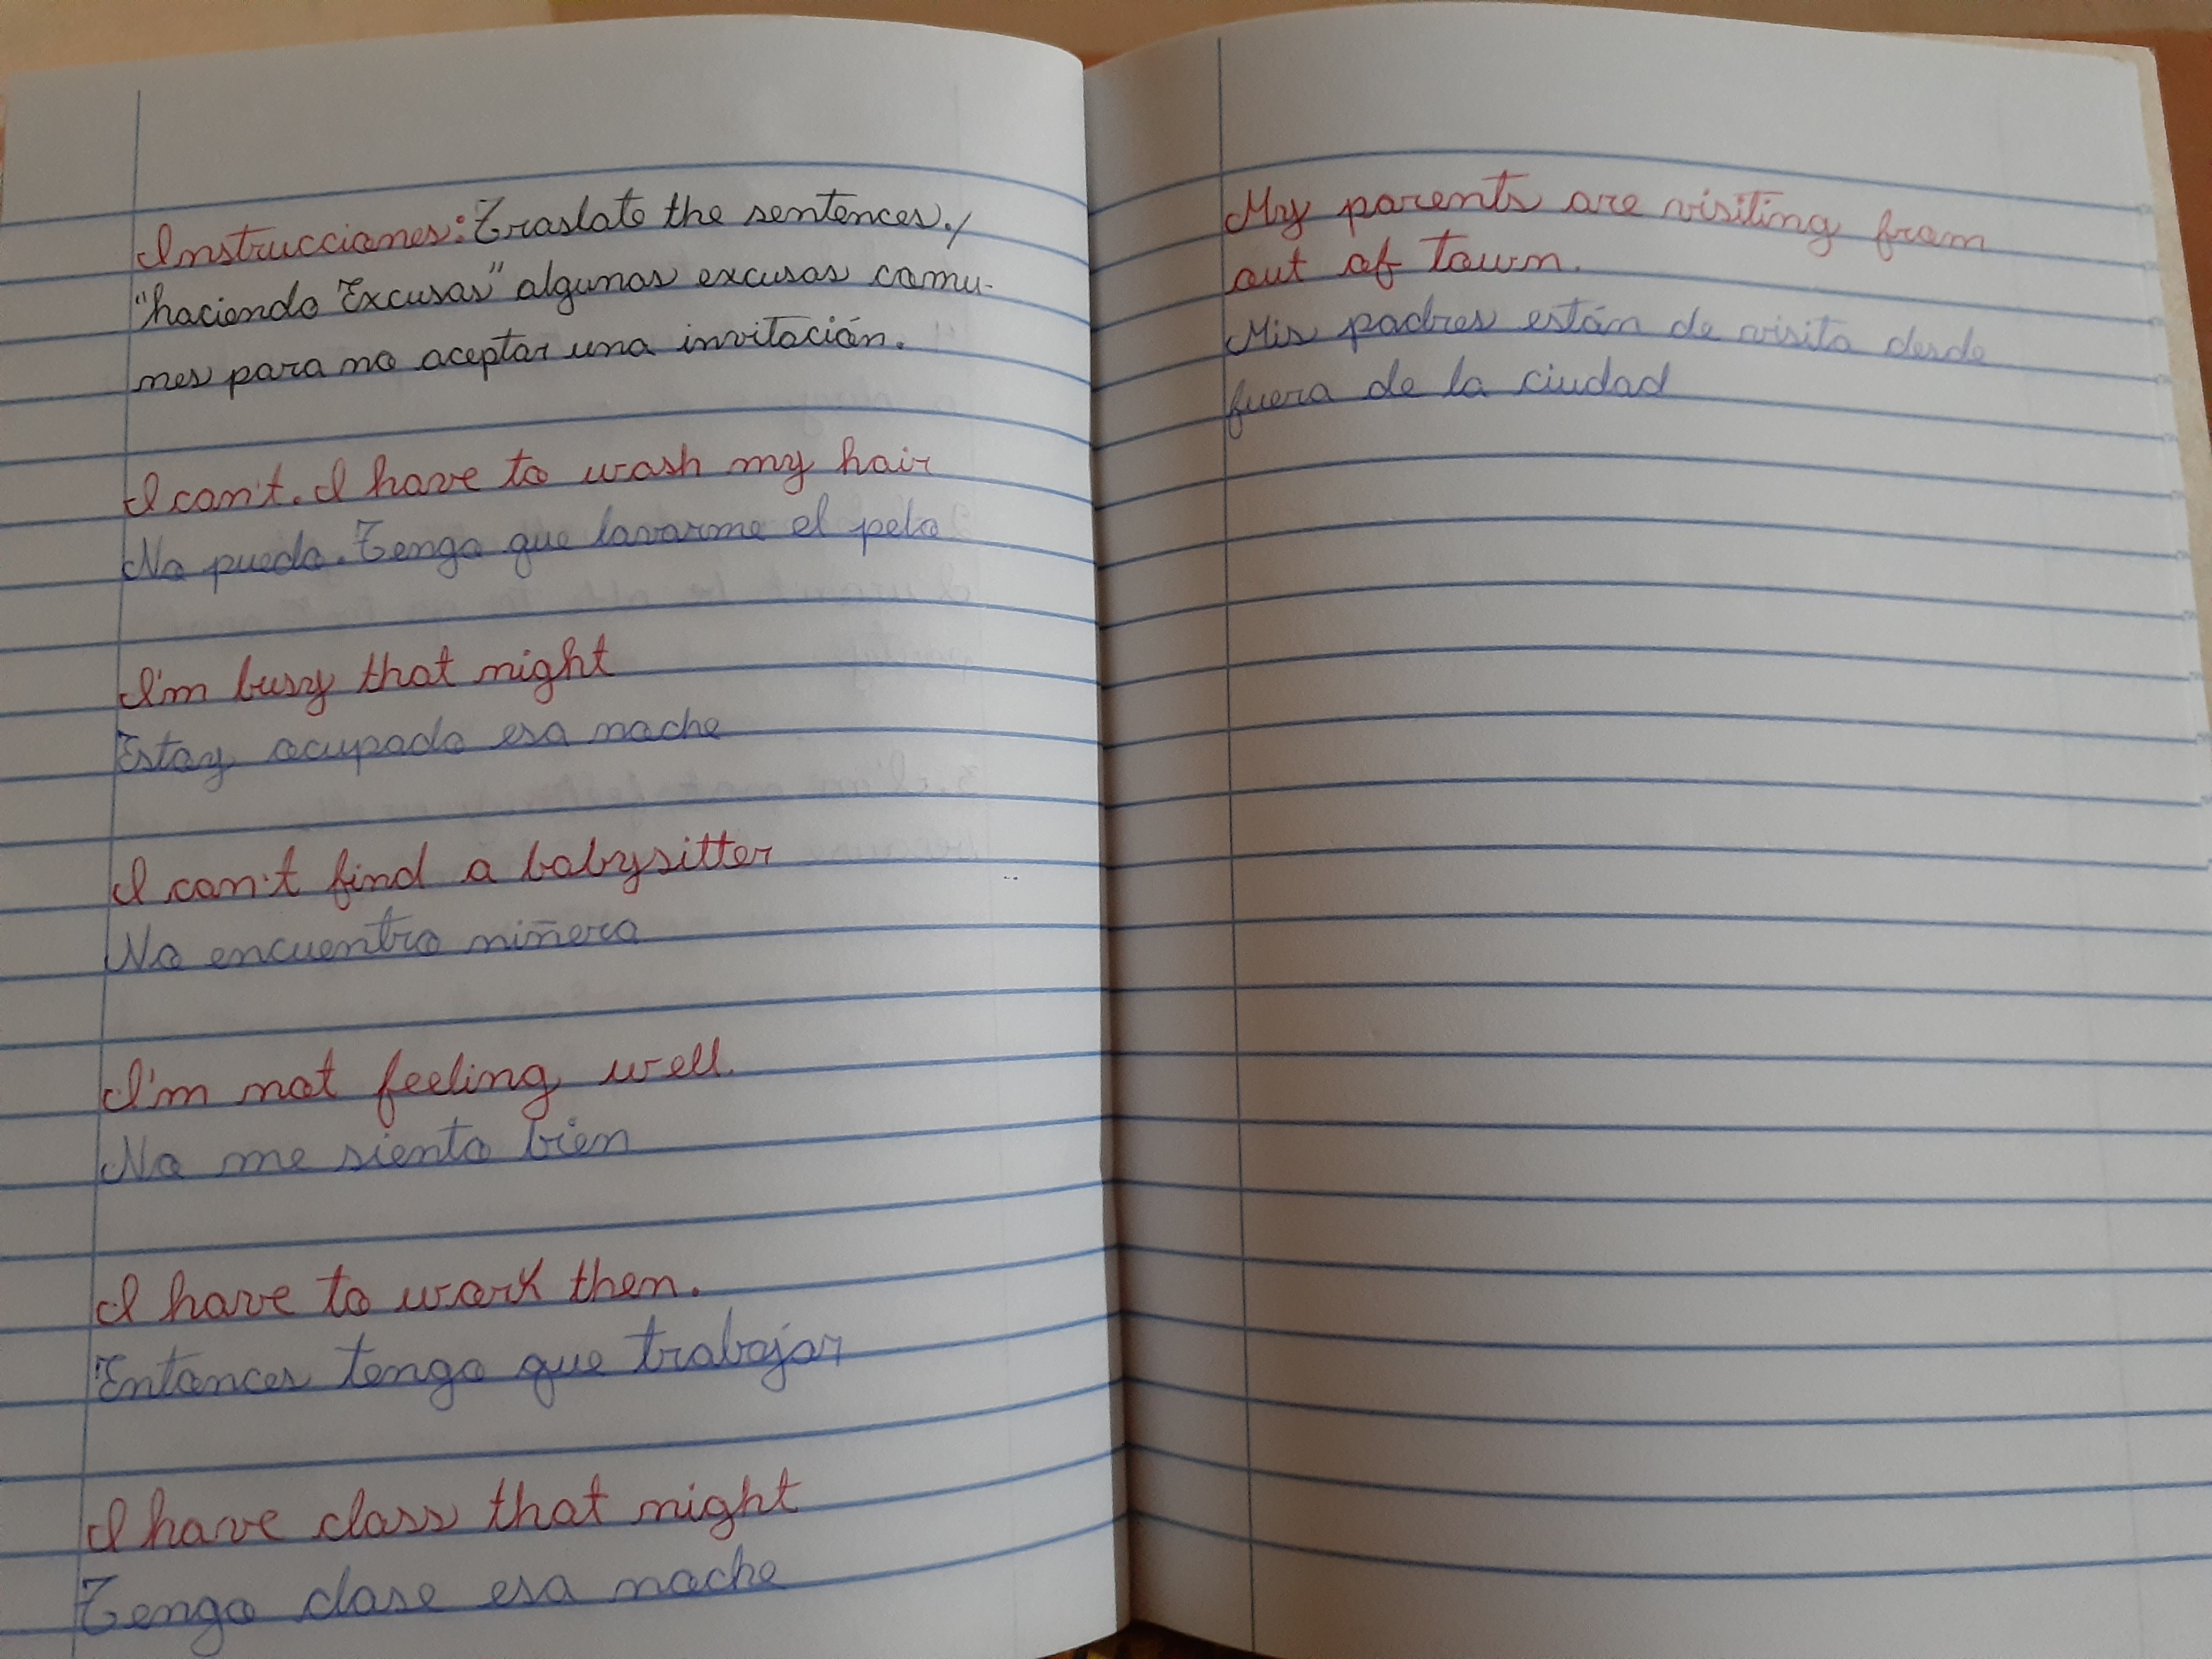 Instrucciones: Traslate the sentences./
"haciendo Excusas" algunas excusas comu-
nes para no aceptar una invitación.
I can't. I have to wash my hair
No puedo. Tengo que lavarme el pelo
I'm busy that night
Estoy ocupado esa noche
I can't find a babysitter
No encuentro niñera
I'm not feeling well.
No me siento bien
I have to work then.
Entonces tengo que trabajar
I have class that night
Tengo clase esa noche
My parents are visiting from
out of town.
Mis padres están de visita desde
fuera de la ciudad